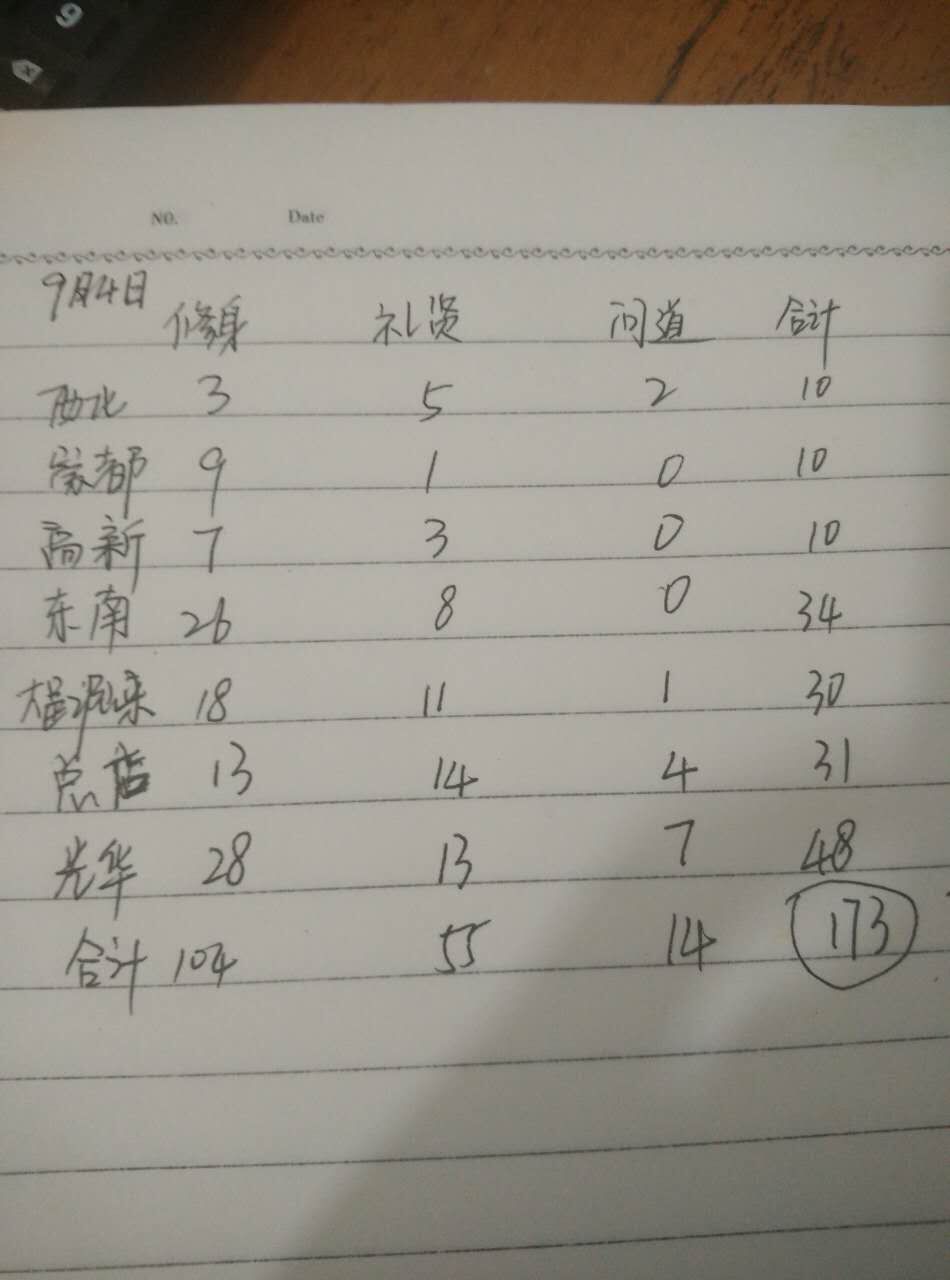 9
x
NO. Date
9月4日
修身 礼贤 问道 合计
西北 3 5 2 10
蒙都 9 1 0 10
高新 7 3 0 10
东南 26 8 0 34
18 11 1 30
总店 13 14 4 31
光华 28 13 7 48
合计 104 55 14 173